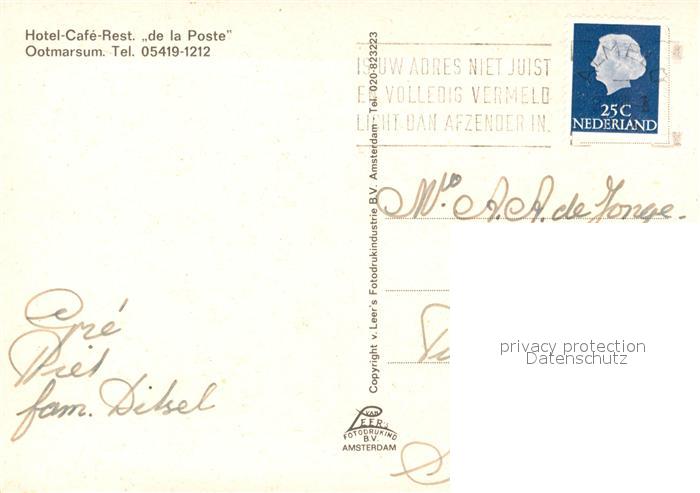 Hotel-Café-Rest. „de la Poste"
Ootmarsum. Tel. 05419-1212
IS UW ADRES NIET JUIST
EN VOLLEDIG VERMELD
LICHT DAN AFZENDER IN.
ALMELO
25C
NEDERLAND
A.A. de Jonge.
Copyright v. Leer's Fotodrukindustrie B.V. Amsterdam - Tel. 020-823223
Gré
Piet
fam. Ditsel
VAN
LEER's
FOTODRUKIND
B.V.
AMSTERDAM
privacy protection
Datenschutz